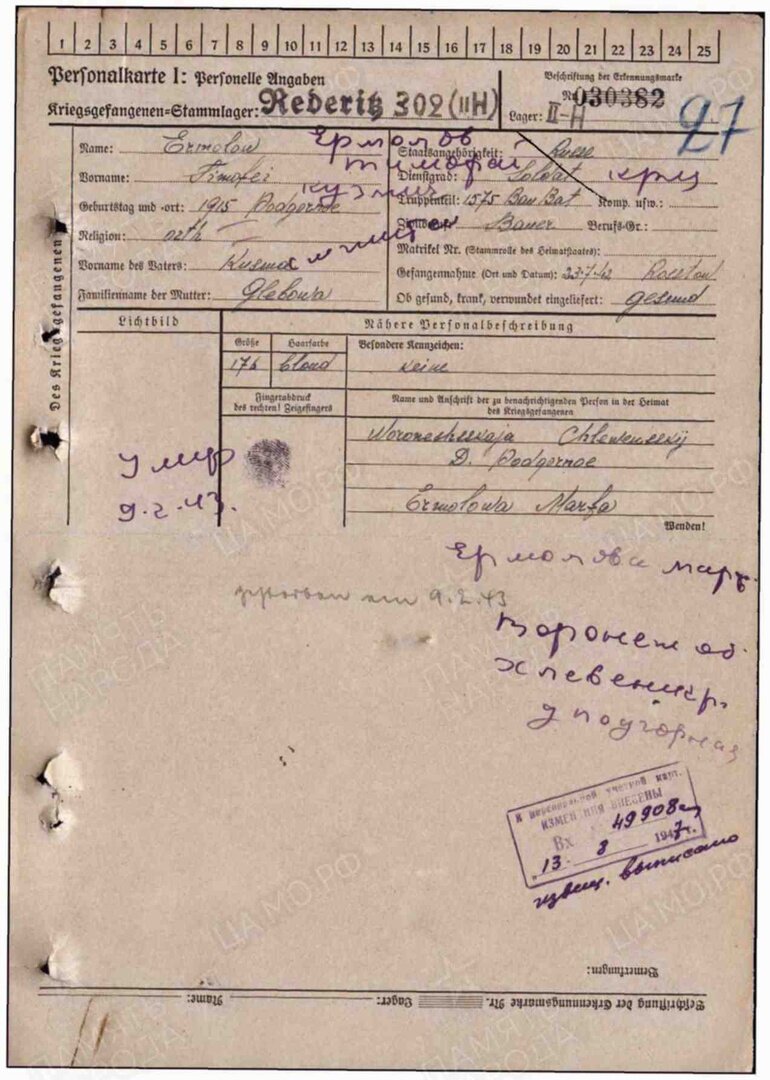 1 2 3 4 5 6 7 8 9 10 11 12 13 14 15 16 17 18 19 20 21 22 23 24 25
Personalkarte I: Personelle Angaben
Kriegsgefangenen-Stammlager: Rederitz 302 (IIH)
Beschriftung der Erkennungsmarke
Nr. 030382
Lager: II-H
27
Des Kriegsgefangenen
Name: Ermolow
Ермолов
Vorname: Timofei
Тимофей
Geburtstag und -ort: 1915 Podgornoe
Кузмич
Religion: orth
Vorname des Vaters: Kusma
Familienname der Mutter: Glebowa
Staatsangehörigkeit: Russe
Dienstgrad: Soldat
Truppenteil: 1575 Bau Bat Komp. usw.:
Zivilberuf: Bauer Berufs-Gr.:
Matrikel Nr. (Stammrolle des Heimatstaates):
Gefangennahme (Ort und Datum): 23.7.42 Rostow
Ob gesund, krank, verwundet eingeliefert: gesund
Lichtbild
Nähere Personalbeschreibung
Größe Haarfarbe
176 blond
Besondere Kennzeichen:
keine
Fingerabdruck
des rechten! Zeigefingers
Name und Anschrift der zu benachrichtigenden Person in der Heimat
des Kriegsgefangenen
Woroneshskaja Chlewensskij
D. Podgornoe
Ermolowa Marfa
Wenden!
Умер
9.2.43.
Ермолова Мар
gestorben am 9.2.43
Воронеж об.
Хлевен
д Подгорная
К персональной учетной карт.
ИЗМЕНЕНИЯ ВНЕСЕНЫ
Вх 49908
"13" 8 1947г.
извещ. выписано
Bemerkungen:
Name: Lager: Beschriftung der Erkennungsmarke Nr.
ПАМЯТЬ
НАРОДА
ЦАМО.РФ